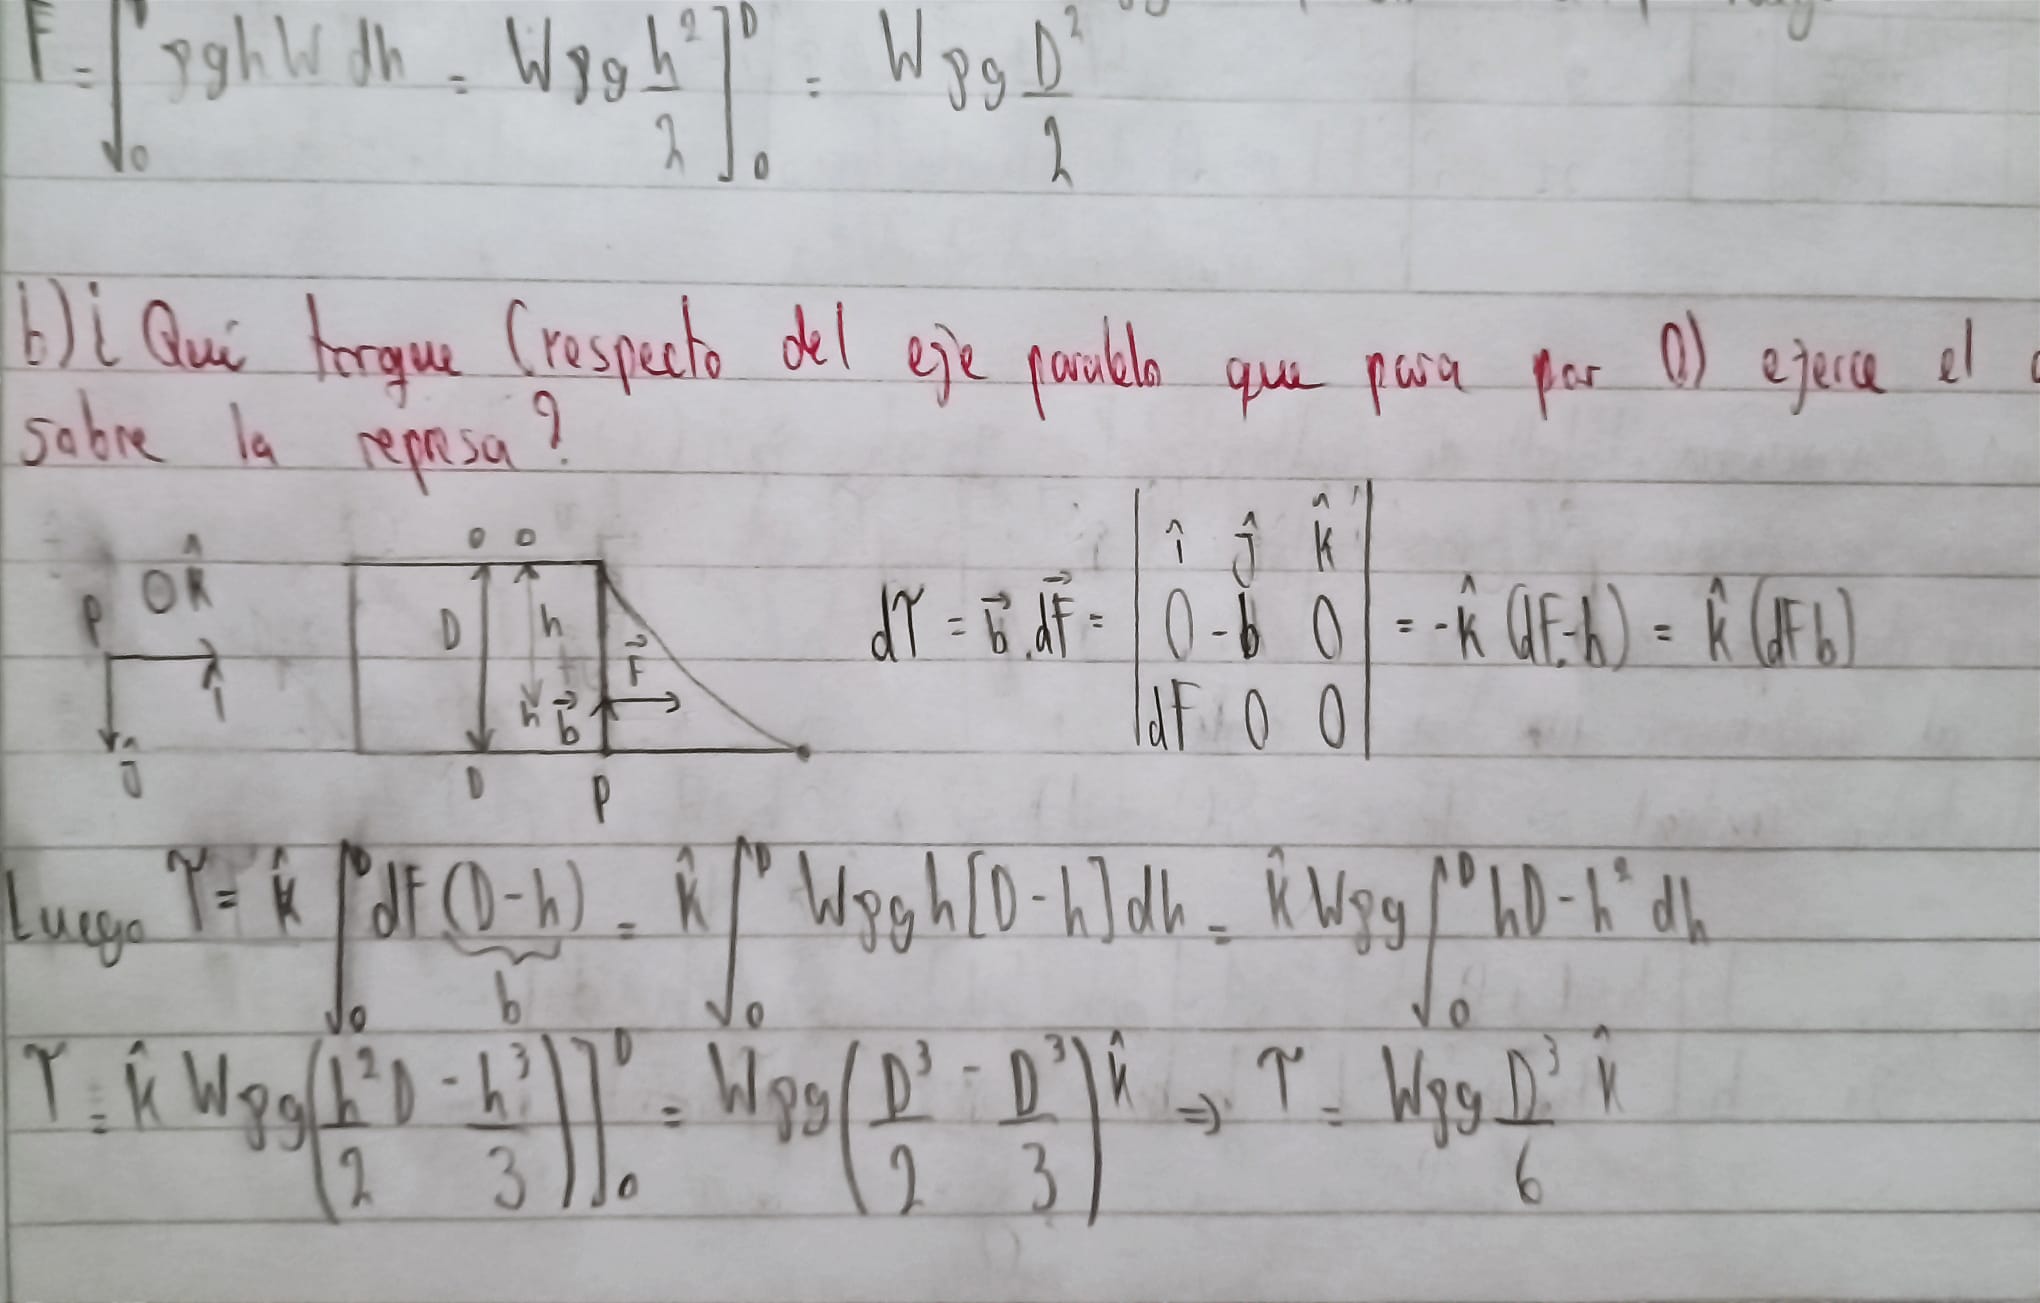 F = ∫₀ᴰ ρghW dh = Wρg h²/2 ]₀ᴰ = Wρg D²/2
b) ¿Qué torque (respecto del eje paralelo que pasa por O) ejerce el
sobre la represa?
P ⊙ k̂ î ĵ
D 0 0 h h b⃗ F⃗ D P
dτ = b⃗ . dF⃗ = | î ĵ k̂ ; 0 -b 0 ; dF 0 0 | = -k̂ (dF.-b) = k̂ (dF b)
Luego τ = k̂ ∫₀ᴰ dF (D-h) = k̂ ∫₀ᴰ Wρgh[D-h]dh = k̂ Wρg ∫₀ᴰ hD-h² dh
b
τ = k̂ Wρg (h²D/2 - h³/3) ]₀ᴰ = Wρg (D³/2 - D³/3) k̂ ⇒ τ = Wρg D³/6 k̂